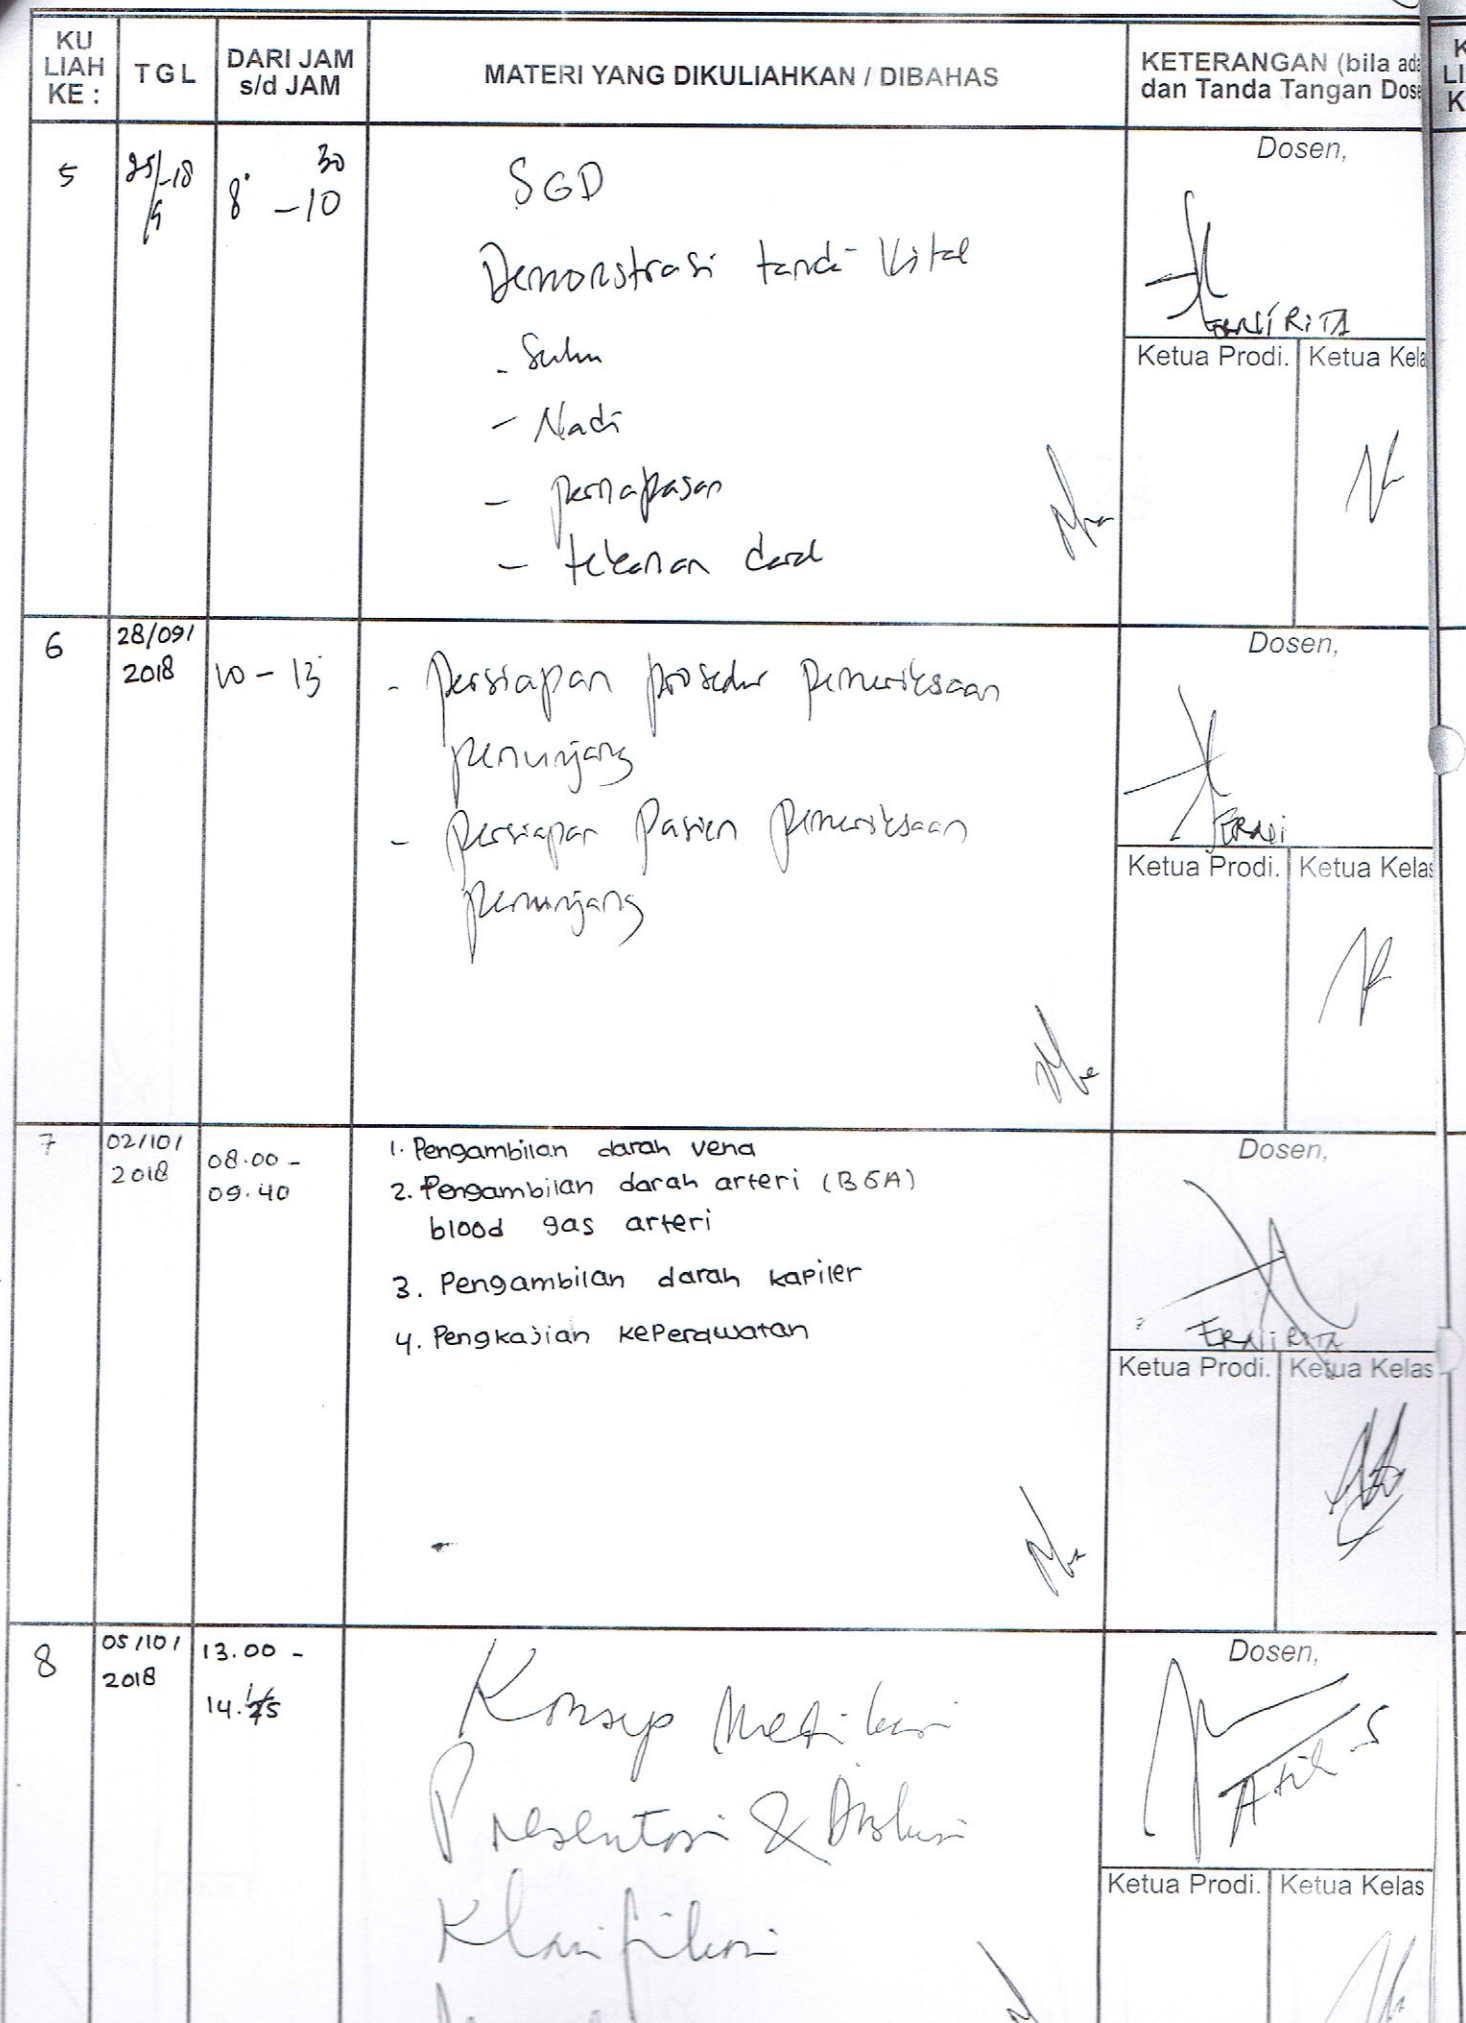 KU LIAH KE :
TGL
DARI JAM s/d JAM
MATERI YANG DIKULIAHKAN / DIBAHAS
KETERANGAN (bila ada
dan Tanda Tangan Dose
5
25/-18
/9
8 - 10 30
SGD
Demonstrasi tanda Vital
- Suhu
- Nadi
- pernapasan
- tekanan darah
Dosen,
ERNI RITA
Ketua Prodi.
Ketua Kela
6
28/09/
2018
10 - 13
- persiapan prosedur pemeriksaan
penunjang
- persiapan pasien pemeriksaan
penunjang
Dosen,
Ketua Prodi.
Ketua Kelas
7
02/10/
2018
08.00 -
09.40
1. Pengambilan darah vena
2. Pengambilan darah arteri (BGA)
blood gas arteri
3. Pengambilan darah kapiler
4. Pengkajian keperawatan
Dosen,
ERNI RITA
Ketua Prodi.
Ketua Kelas
8
05/10/
2018
13.00 -
14.
Konsep Medikasi
Presentasi & Diskusi
Klarifikasi
Dosen,
Ketua Prodi.
Ketua Kelas